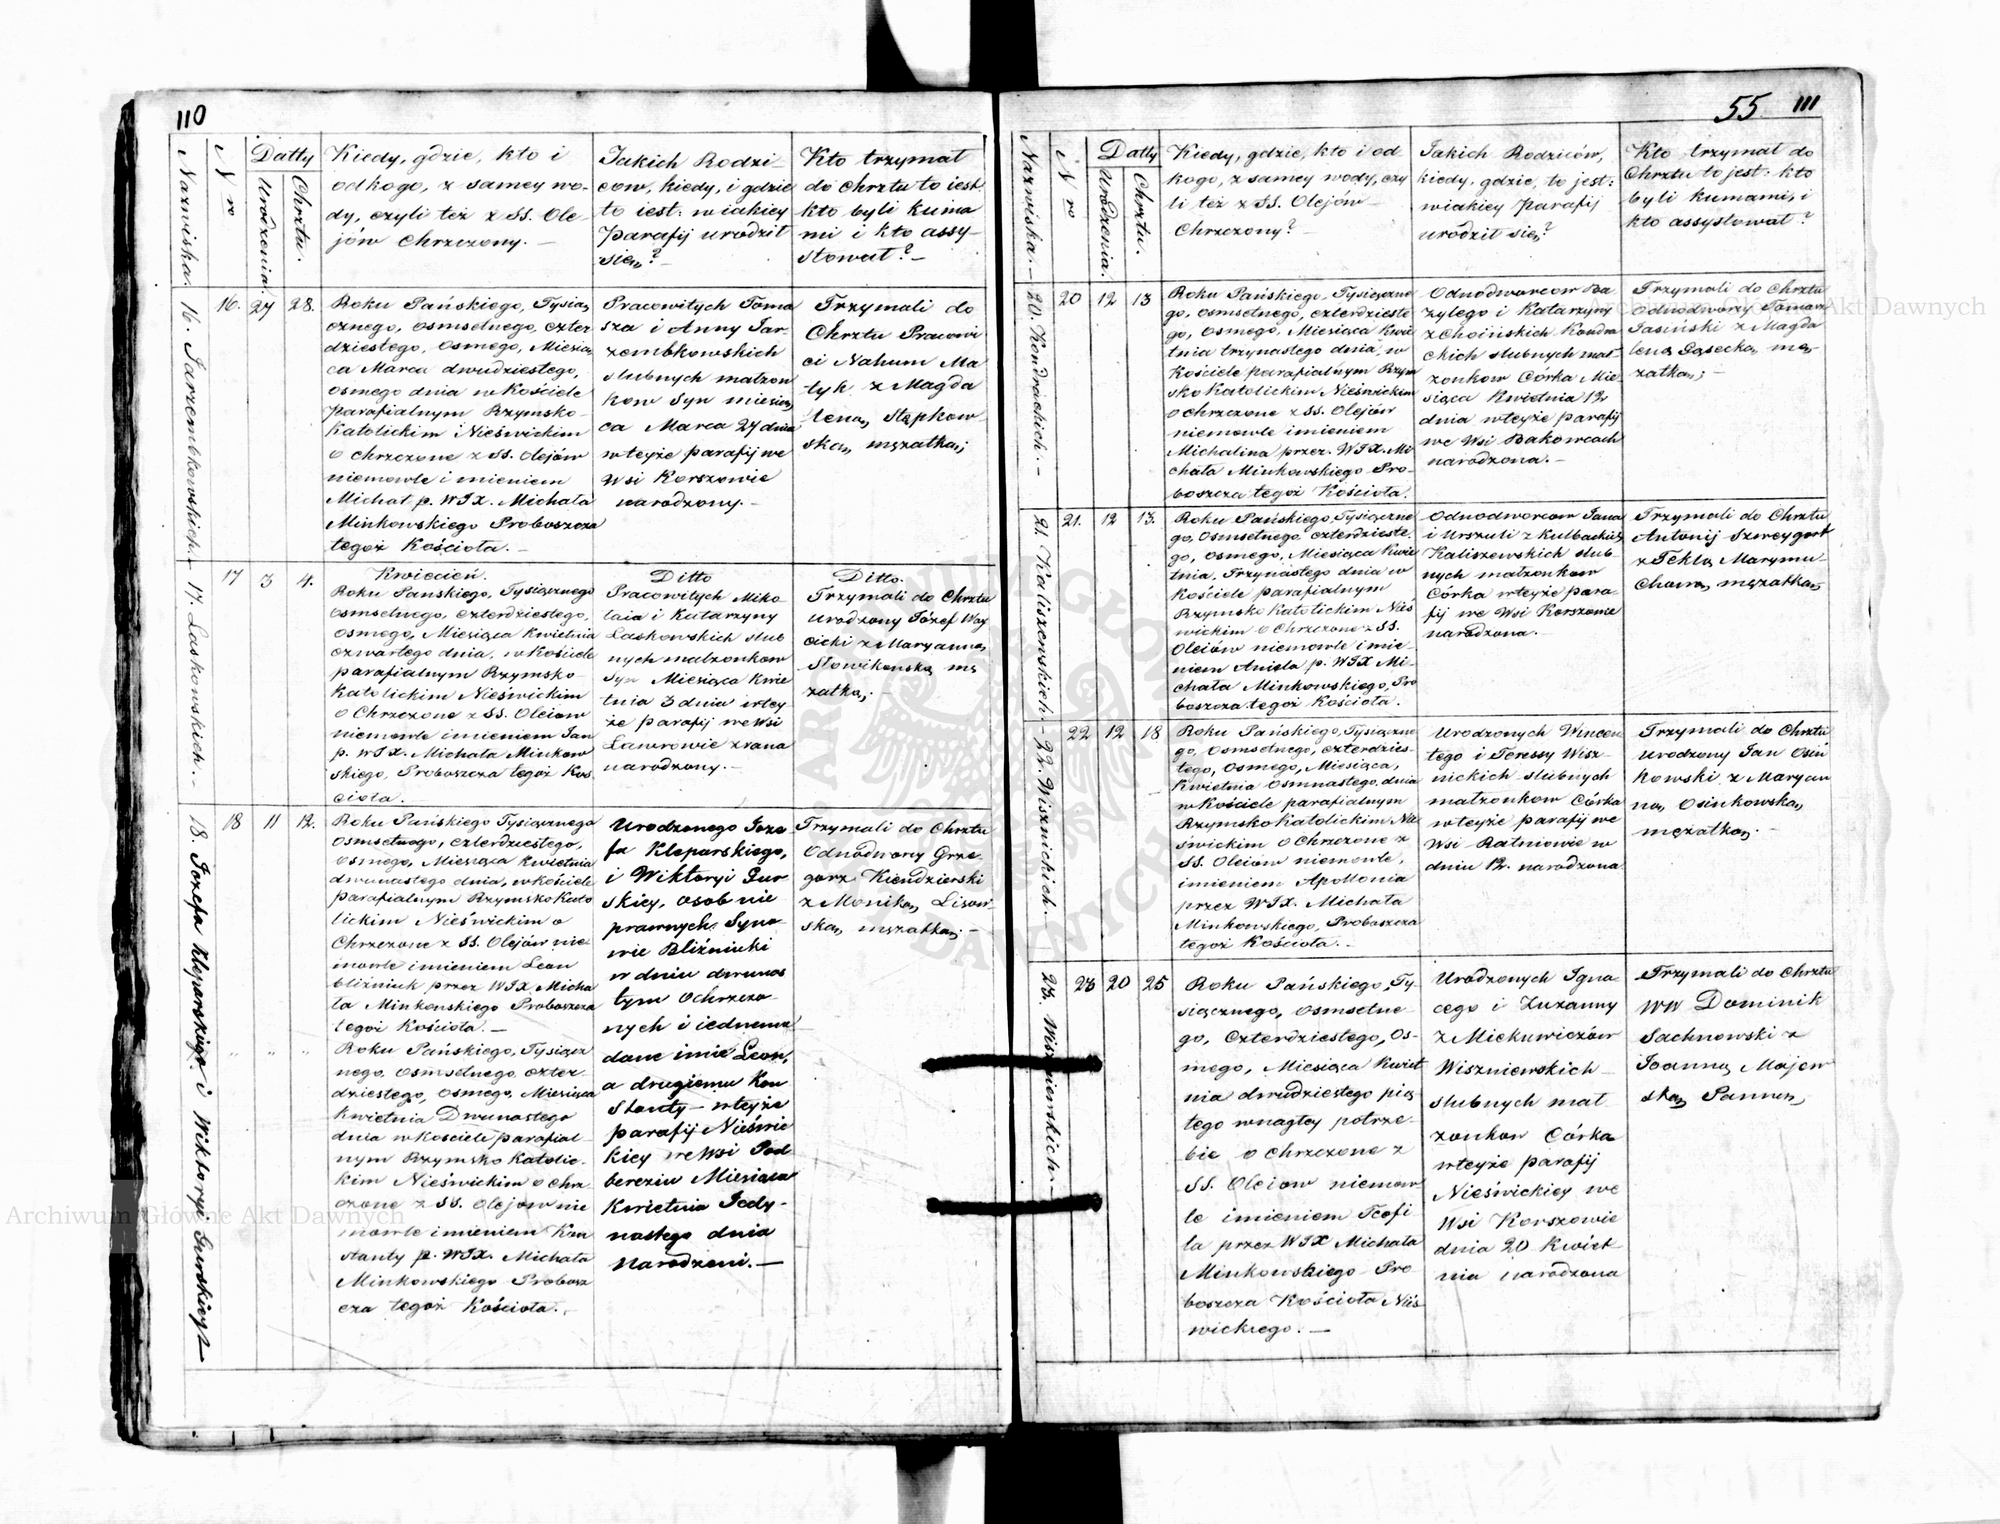 110
Nazwiska.
Nro
Datty
Urodzenia.
Chrztu.
Kiedy, gdzie, kto i
od kogo, z samey wo-
dy, czyli też z SS. Ole-
jów Chrzczony. —
Jakich Rodzi-
ców, kiedy, i gdzie
to iest: w iakiey
Parafij urodził
się? —
Kto trzymał
do Chrztu to iest
kto byli kuma
mi i kto assy-
stował? —
16. Jarzembkowskich. —
16.
27
28.
Roku Pańskiego, Tysią
cznego, osmsetnego, czter
dziestego, Osmego, Miesią
ca Marca dwudziestego,
osmego dnia w Kościele
Parafialnym Rzymsko-
Katolickim Nieświckim
o chrzczone z SS. Olejów
niemowle imieniem
Michał p. WJX. Michała
Minkowskiego Proboszcza
tegoż Kościoła. —
Pracowitych Toma
sza i Anny Jar-
zembkowskich
slubnych małzon
kow Syn miesią
ca Marca 27 dnia
w teyże parafij we
Wsi Korszowie
narodzony. —
Trzymali do
Chrztu Pracowi
ci Nahum Ma
tyk z Magda
leną Stępkow-
ską mężatką;
17. Laskowskich. —
17
3
4.
Kwiecień.
Roku Pańskiego, Tysiącznego
osmsetnego, czterdziestego,
Osmego, Miesiąca Kwietnia
czwartego dnia, w Kościele
parafialnym Rzymsko-
Katolickim Nieświckim
o Chrzczone z SS. Oleiow
niemowle imieniem Jan
p. WJX. Michała Minkow
skiego, Proboszcza tegoż Koś
cioła. —
Ditto
Pracowitych Miko
łaia i Katarzyny
Laskowskich slub
nych małzonkow
Syn Miesiąca Kwie
tnia 3 dnia w tey
że parafij we Wsi
Ławrowie zwana
narodzony. —
Ditto.
Trzymali do Chrztu
urodzony Józef Woy
cicki z Maryanną
Słowikowską mę
żatką; —
18. Jozefa Kleparskiego i Wiktoryi Gurskieyz
18
11
12.
Roku Pańskiego Tysiącznego
Osmsetnego, czterdziestego,
Osmego, Miesiąca Kwietnia
dwunastego dnia, w Kościele
parafialnym Rzymsko Kato
lickim Nieświckim o
Chrzczone z SS. Olejów nie
mowle imieniem Leon
bliźniuk przez WJX Micha
ła Minkowskiego Proboszcza
tegoż Kościoła. —
Roku Pańskiego, Tysiącz
nego, Osmsetnego, czter
dziestego, Osmego, Miesiąca
Kwietnia Dwunastego
dnia w Kosciele parafial-
nym Rzymsko Katolic-
kim Nieświckim o chrz
czone z SS. Olejow nie
mowle imieniem Kon
stanty p. WJX. Michała
Minkowskiego Probosz
cza tegoż Kościoła. —
Urodzonego Joze
fa Kleparskiego,
i Wiktoryi Gur
skiey, osob nie
prawnych. Syno
wie Bliźniuki
w dniu dwunas
tym Ochrzczo-
nych i iednemu
dane imie Leon,
a drugiemu Kon
stanty — w teyże
parafij Nieświc
kiey we Wsi Pod
bereziu Miesiąca
Kwietnia Jedy-
nastego dnia
Narodzeni. —
Trzymali do Chrztu
Odnodworzy Grze
gorz Kiendzierski
z Moniką Lisow-
ską mężatką; —
55 111
Nazwiska. —
Nro
Datty
Urodzenia.
Chrztu.
Kiedy, gdzie, kto i od
kogo, z samey wody, czy
li też z SS. Olejów
Chrzczony? —
Jakich Rodziców,
kiedy, gdzie, to jest:
w iakiey Parafij
urodził się?
Kto trzymał do
Chrztu to jest: kto
byli kumami, i
kto assystował?
20. Kondrackich. —
20
12
13
Roku Pańskiego, Tysiączne
go, osmsetnego, czterdzieste
go, Osmego, Miesiąca Kwie
tnia trzynastego dnia, w
Kościele parafialnym Rzym
sko Katolickim Nieświckim
o chrzczone z SS. Olejów
niemowle imieniem
Michalina przez WJX. Mi
chała Minkowskiego Pro-
boszcza tegoż Kościoła.
Odnodworcow Ba
zylego i Katarzyny
z Choińskich Kondra
ckich slubnych mał-
zonkow Córka Mie
siąca Kwietnia 12
dnia w teyże parafij
we Wsi Bakowcach
narodzona. —
Trzymali do Chrztu
Odnodworzy Tomasz
Jasiński z Magda
leną Gąsecką, mę-
żatką; —
21. Kaliszewskich —
21.
12
13.
Roku Pańskiego, Tysiączne
go, Osmsetnego czterdzieste-
go, Osmego, Miesiąca Kwie
tnia, Trzynastego dnia w
Kościele parafialnym
Rzymsko Katolickim Nieś
wickim o Chrzczone z SS.
Oleiów niemowle imie-
niem Aniela p. WJX Mi-
chała Minkowskiego, Pro
boszcza tegoż Kościoła.
Odnodworcow Jana
i Urszuli z Kulbackich
Kaliszewskich slub-
nych małzonkow
Córka w teyże para-
fij we Wsi Korszowie
narodzona. —
Trzymali do Chrztu
Antonij
z Teklą
mężatką,
22. Wisznickich. —
22
12
18
Roku Pańskiego, Tysiączne
go, Osmsetnego, czterdzies-
tego, Osmego, Miesiąca,
Kwietnia Osmnastego, dnia
w Kościele parafialnym
Rzymsko Katolickim Nie
świckim o Chrzczone z
SS. Oleiow niemowle,
imieniem Apollonia
przez WJX. Michała
Minkowskiego, Proboszcza
tegoż Kościoła. —
Urodzonych Wincen
tego i Teressy Wisz-
nickich slubnych
małzonkow Córka
w teyże parafij we
Wsi Ratniowie w
dniu 12. narodzona
Trzymali do Chrztu
urodzony Jan Osin
kowski z Maryan
ną, Osinkowską,
mężatką. —
23. Wiszniewskich —
23
20
25
Roku Pańskiego, Ty-
siącznego, Osmsetne-
go, Czterdziestego, Os-
mego, Miesiąca Kwiet
nia dwudziestego pią
tego w nagłey potrze-
bie o chrzczone z
SS. Oleiow niemow
le imieniem Teofi
la przez WJX Michała
Minkowskiego Pro
boszcza Kościoła Nieś-
wickiego. —
Urodzonych Igna
cego i Zuzanny
z Mickiewiczów
Wiszniewskich
slubnych mał
zonkow Córka
w teyże parafij
Nieświckiey we
Wsi Korszowie
dnia 20 Kwiet-
nia narodzona
Trzymali do Chrztu
WW Dominik
Sachnowski z
Joanną Majew
ską Panną,
Archiwum Główne Akt Dawnych
Archiwum Główne Akt Dawnych
ARCHIWUM GŁÓWNE AKT DAWNYCH